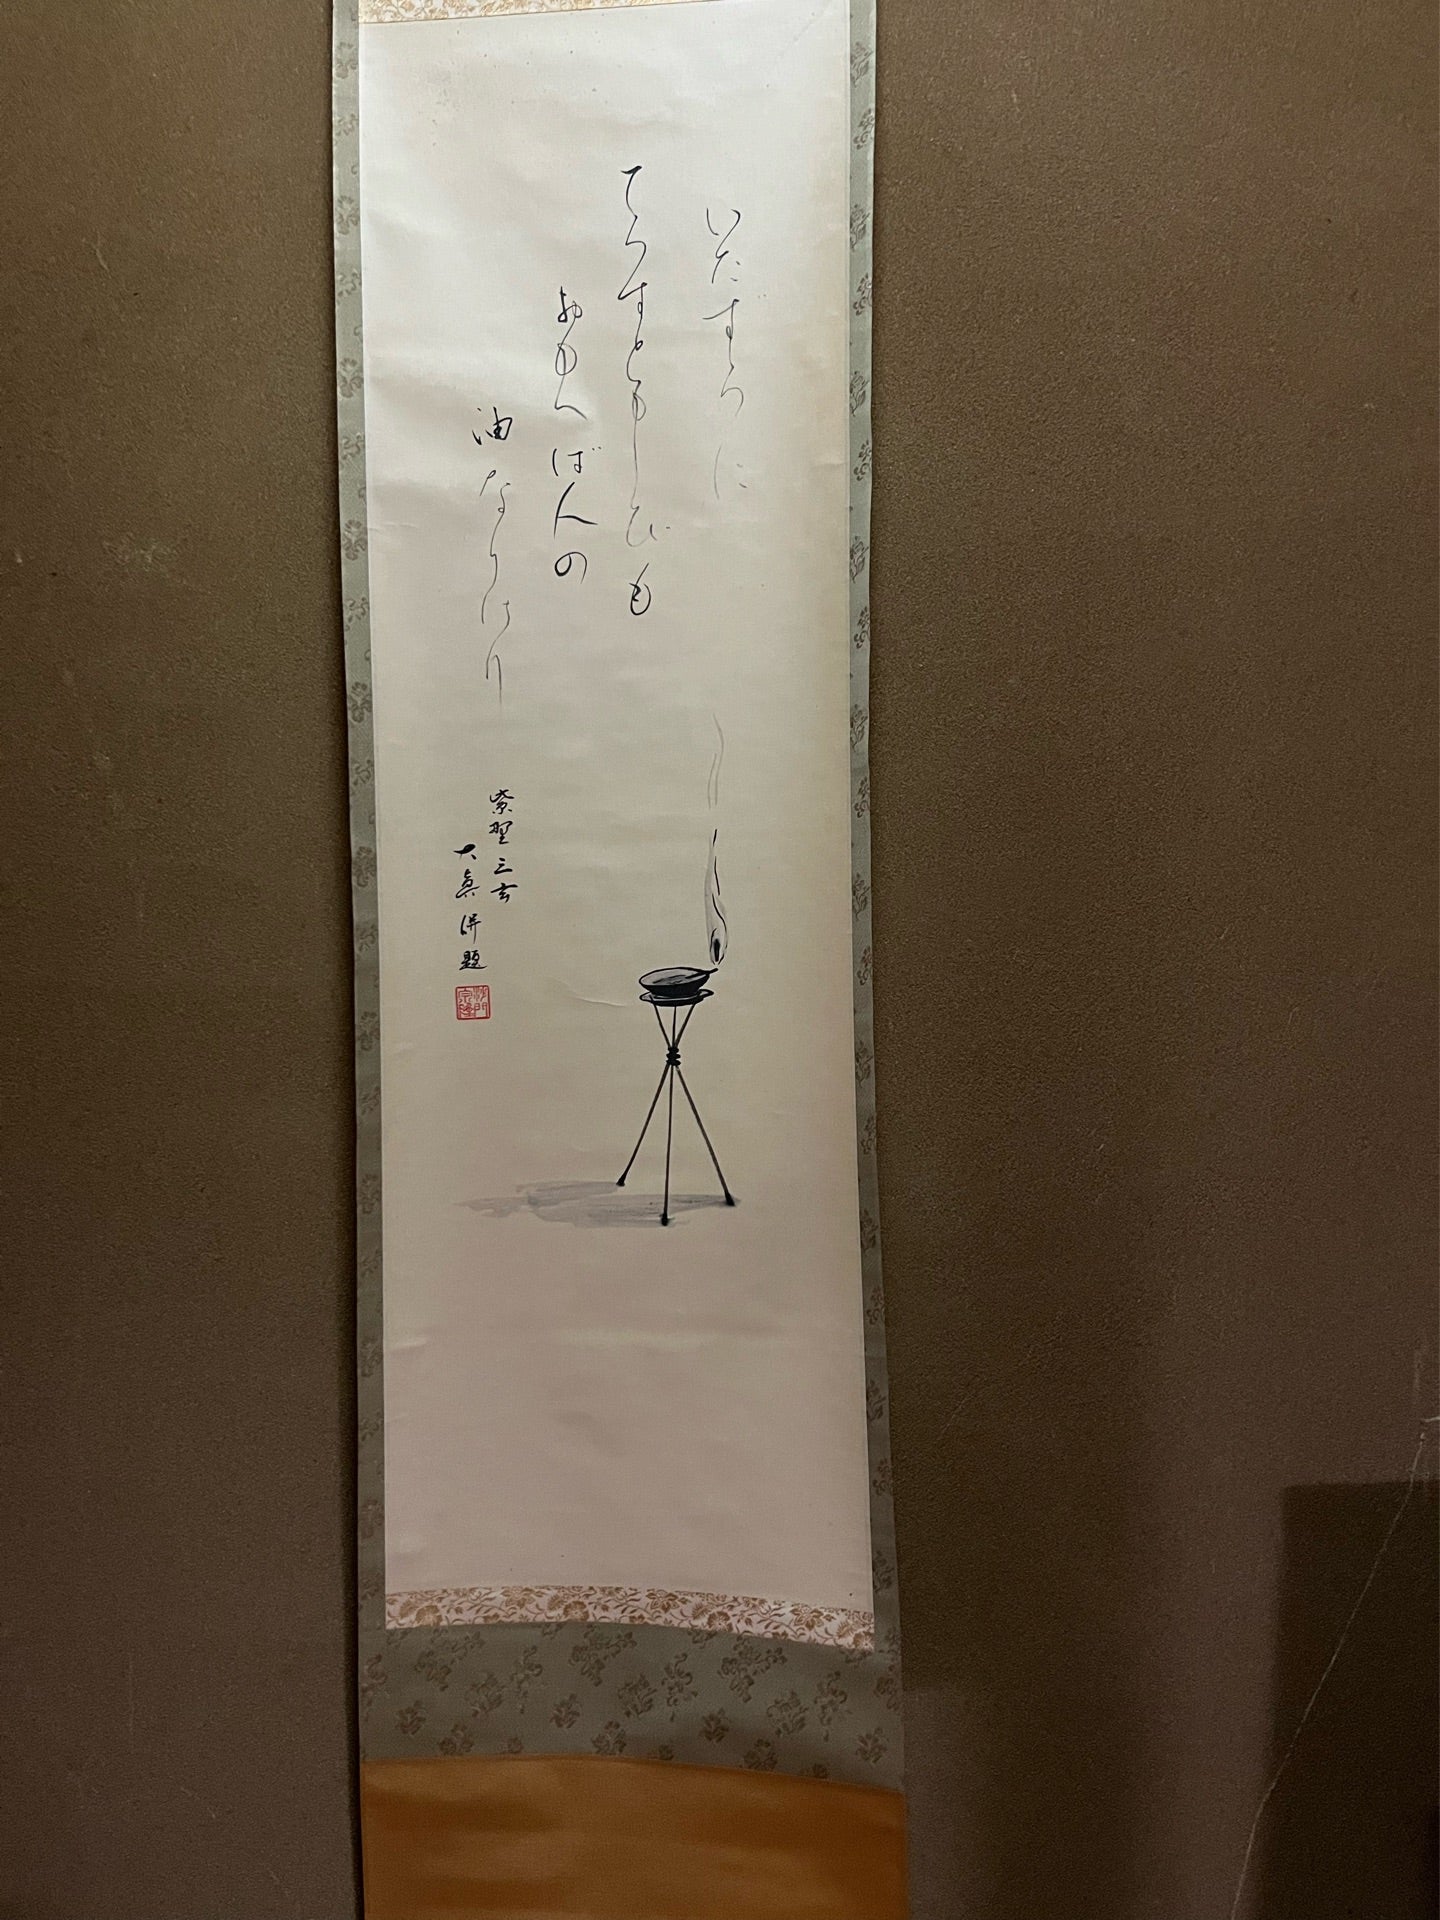 いたすらに
てらすともしびも
おもへば人の
油なりけり
紫野三玄
大眞併題